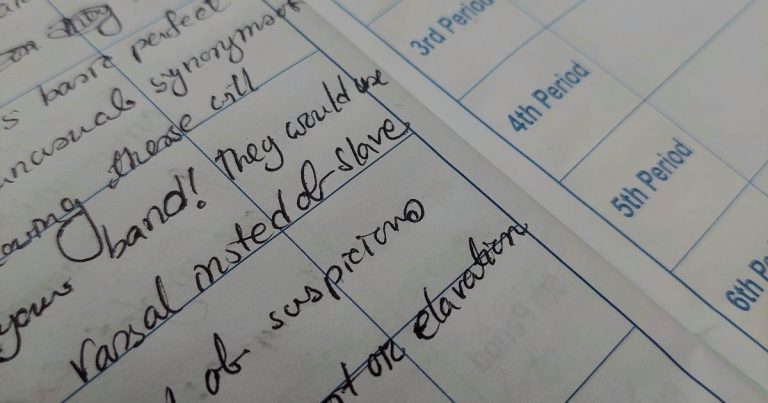 s basic perfect
unasual synonyms of
owing these will
your band! They would use
vassal insted of slave
of suspicions
or elavation
3rd Period
4th Period
5th Period
6th Pe